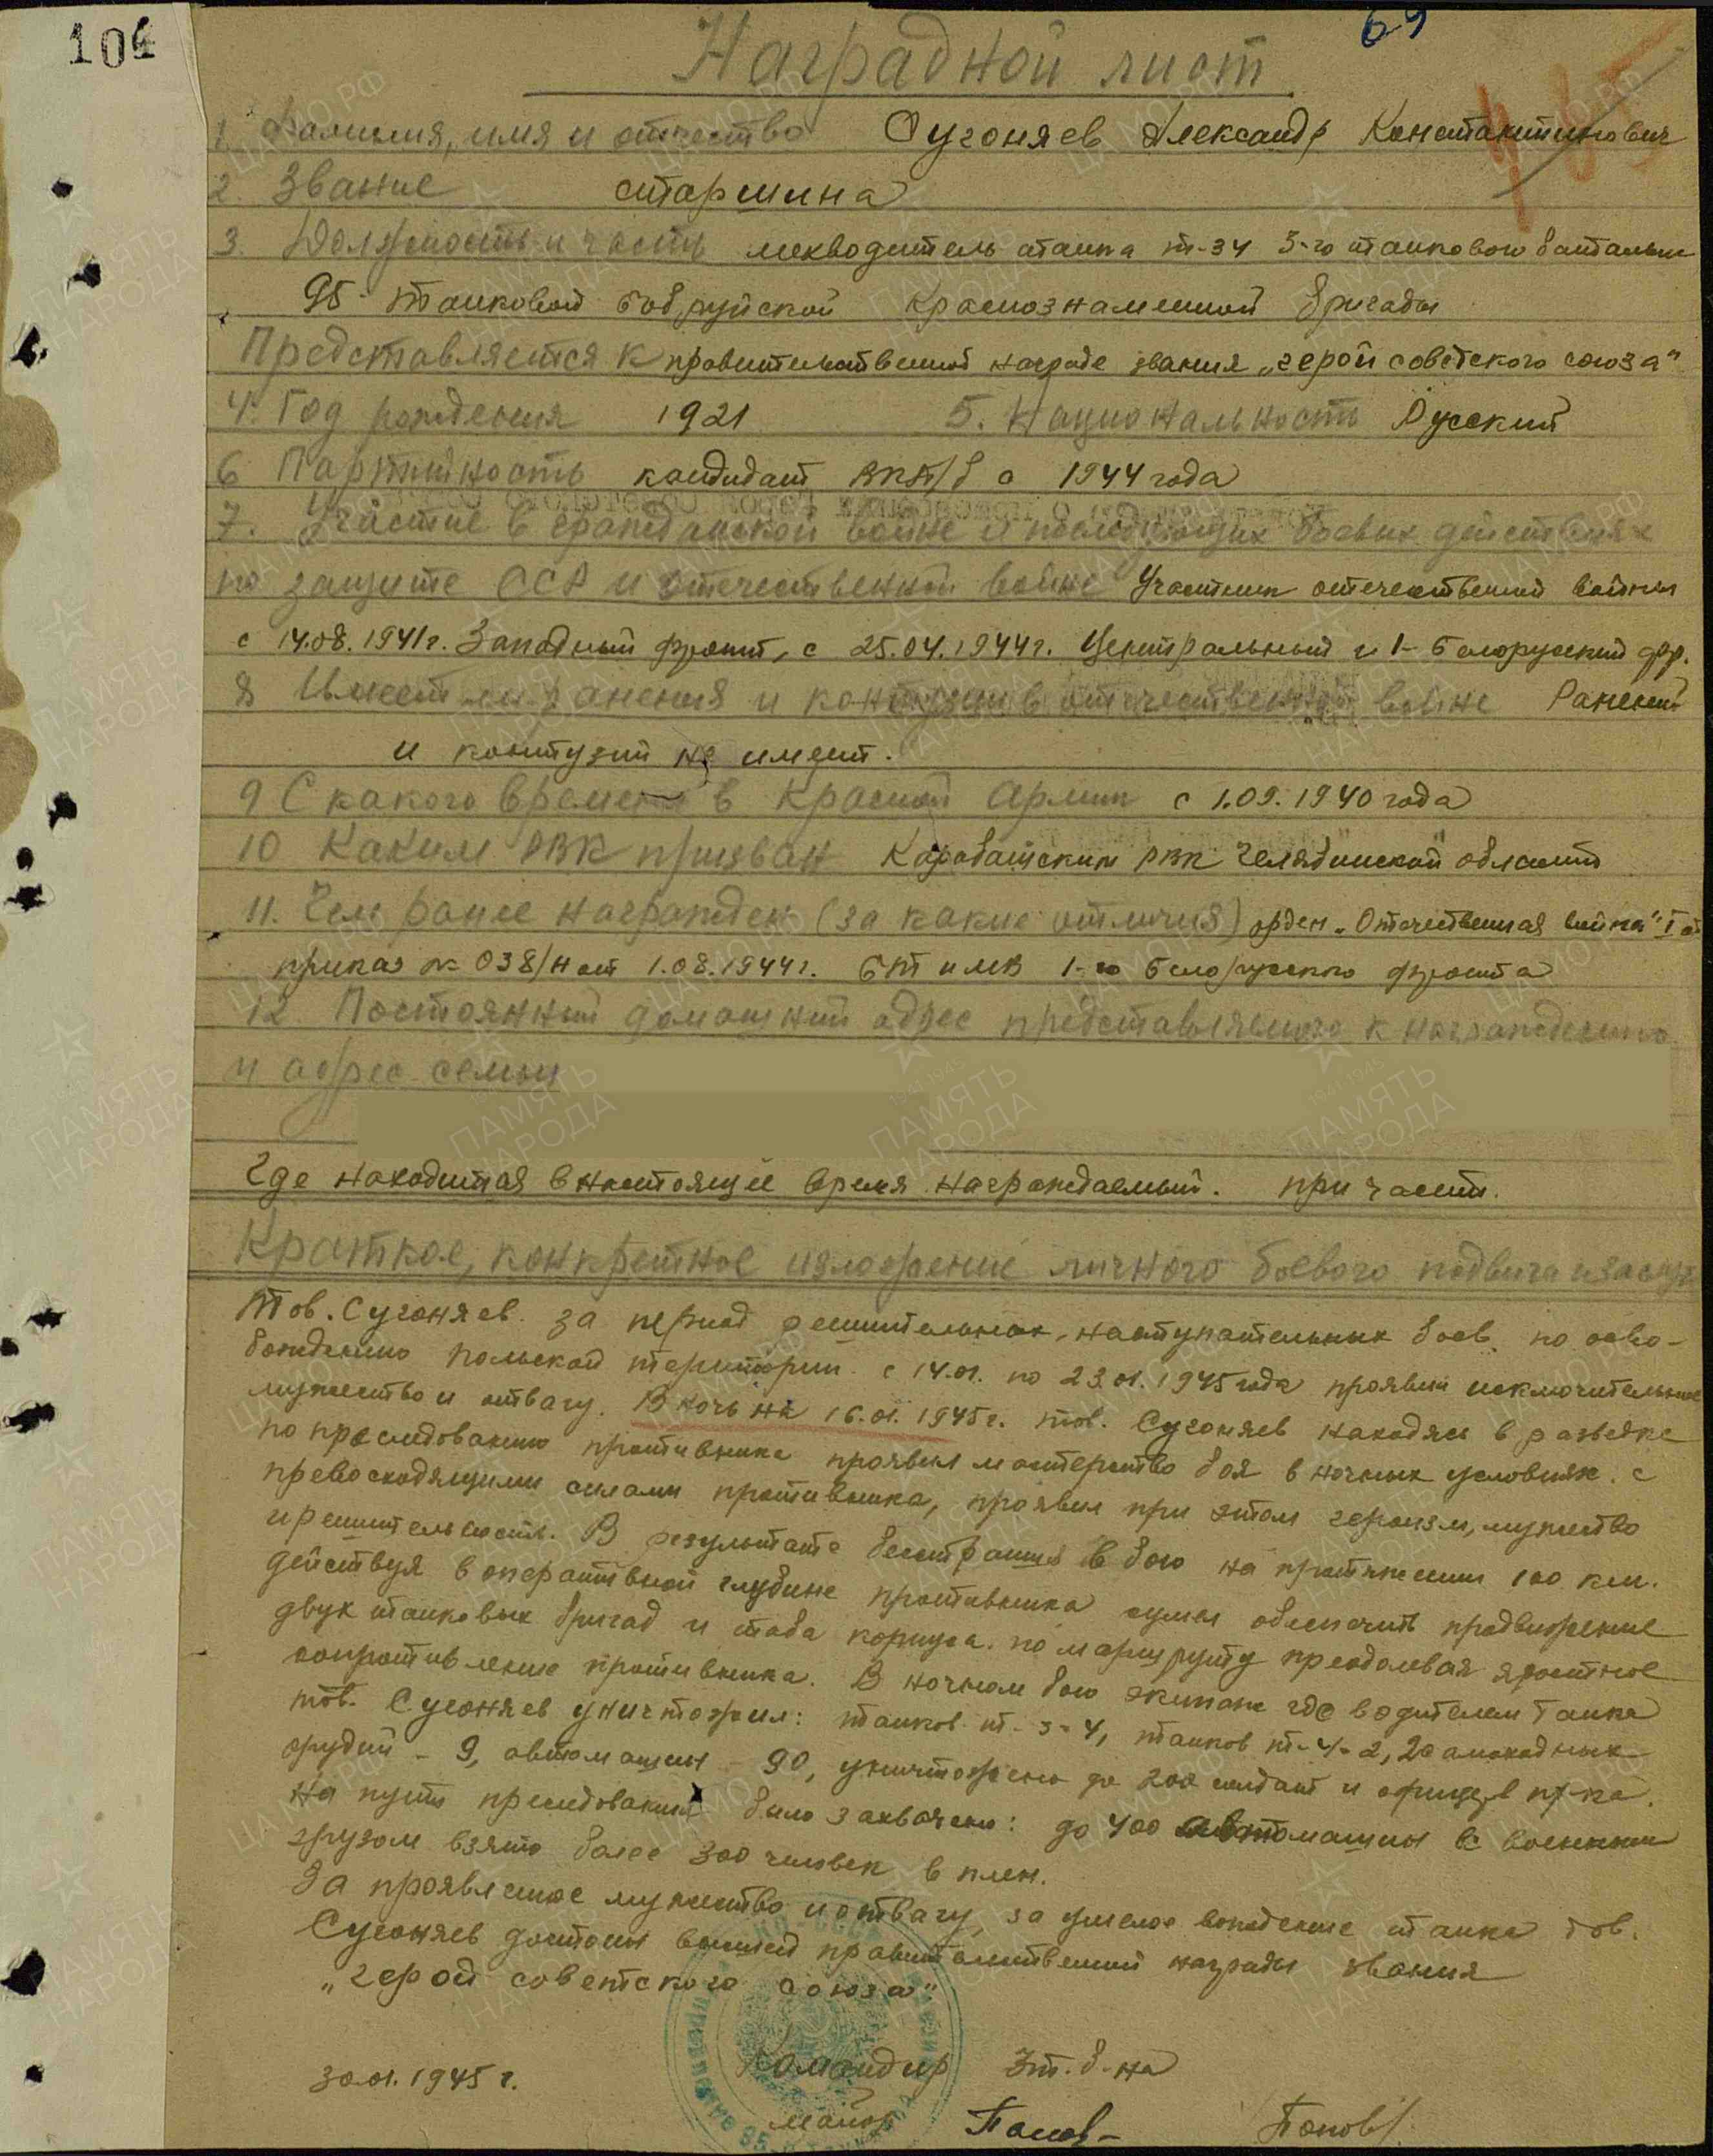 104
69
Наградной лист
1. Фамилия, имя и отчество Сугоняев Александр Константинович
2. Звание старшина
3. Должность и часть мехводитель танка т-34 3-го танкового батальона
95 танковой Бобруйской Краснознаменной бригады
Представляется к правительственной награде звания „герой советского союза"
4. Год рождения 1921 5. Национальность Русский
6 Партийность кандидат ВКП/б с 1944 года
7. Участие в гражданской войне и последующих боевых действиях
по защите СССР и отечественной войне Участник отечественной войны
с 14.08.1941г. Западный фронт, с 25.04.1944г. Центральный и 1-Белорусский фр.
8 Имеет ли ранения и контузии в отечественной войне Ранений
и контузий не имеет.
9 С какого времени в Красной армии с 1.09.1940 года
10 Каким РВК призван Карабашским РВК Челябинской области
11. Чем ранее награжден (за какие отличия) орден „Отечественная война" I ст
приказ № 038/н от 1.08.1944г. БТ и МВ 1-го Белорусского фронта
12. Постоянный домашний адрес представляемого к награждению
и адрес семьи
Где находится в настоящее время награждаемый. при части.
Краткое, конкретное изложение личного боевого подвига и заслуг
Тов. Сугоняев за период решительных, наступательных боев по осво-
бождению польской територии с 14.01. по 23.01.1945 года проявил исключительное
мужество и отвагу. В ночь на 16.01.1945г. тов. Сугоняев находясь в разъезде
по преследованию противника проявил мастерство боя в ночных условиях с
превосходящими силами противника, проявил при этом героизм, мужество
и решительность. В результате бесстрашия в бою на протяжении 100 км.
действуя в оперативной глубине противника сумел обеспечить продвижение
двух танковых бригад и штаба корпуса по маршруту преодолевая яростное
сопротивление противника. В ночном бою экипаж где водителем танка
тов. Сугоняев уничтожил: танков т-3-4, танков т-4-2, самоходных
орудий - 9, автомашин - 90, уничтожено до 200 солдат и офицеров пр-ка.
На пути преследования было захвачено: до 400 автомашин с военным
грузом взято более 300 человек в плен.
За проявленное мужество и отвагу, за умелое вождение танка тов.
Сугоняев достоин высшей правительственной награды звания
„герой советского союза"
Командир 3 т. б-на
30.01.1945 г.
майор Попов /Попов/